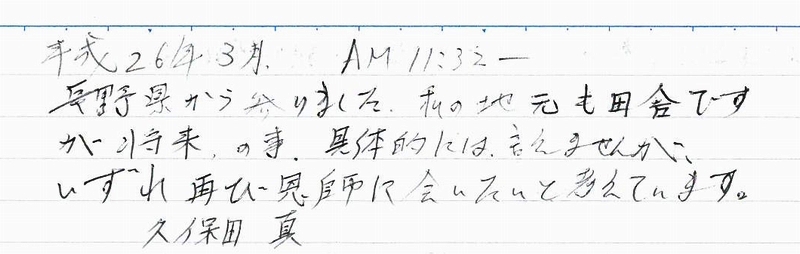 平成26年3月. AM 11:32ー
長野県から参りました. 私の地元も田舎です
が将来、の事、具体的には、言えませんが、
いずれ再び恩師に会いたいと考えています。
久保田 真